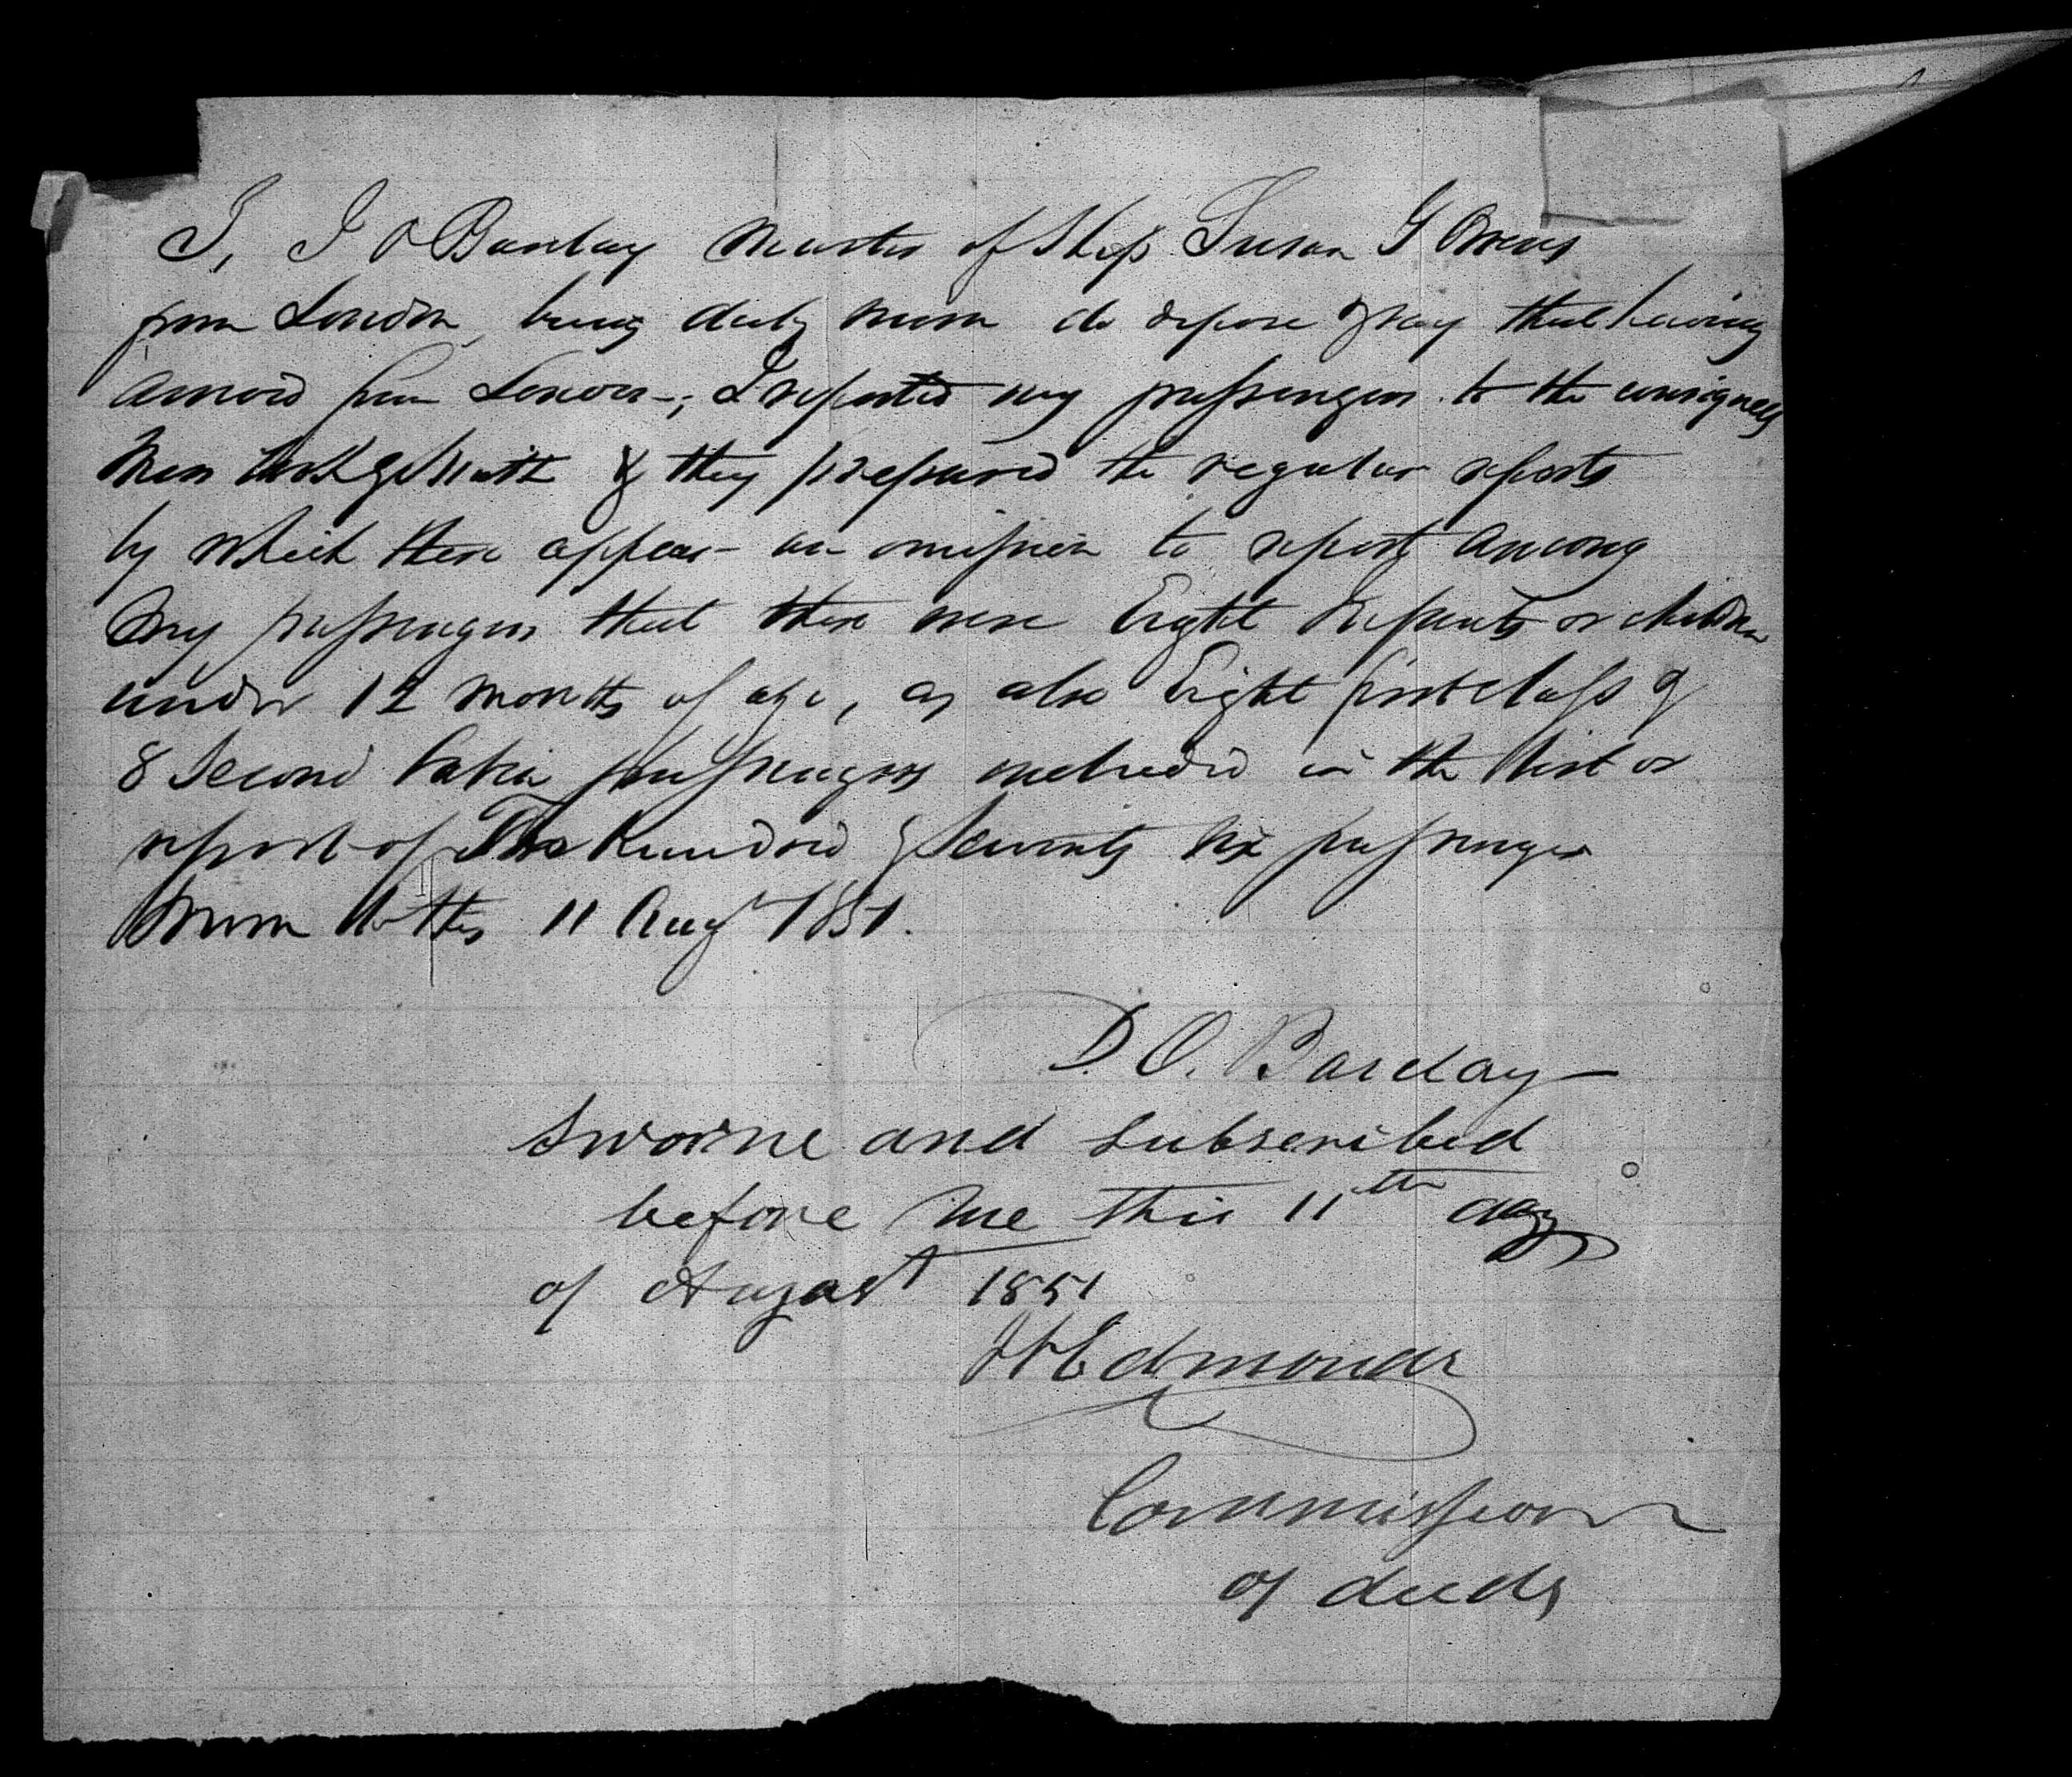 I, I O Barclay Master of Ship Susan G Owens
from London, being duly sworn do depose & say that having
arrived from London -; I reported my passengers to the consignees
& they prepared the regular reports
by which there appear - an omission to report among
my passengers that there were Eight Infants or children
under 12 months of age, as also Eight first class &
8 Second Cabin passengers included in the list or
report of Two hundred & Seventy Six passengers
Sworn to this 11 Augt 1851.
D. O. Barclay
Sworne and subscribed
before me this 11th day
of August 1851
Edmonds
Commissioner
of deeds